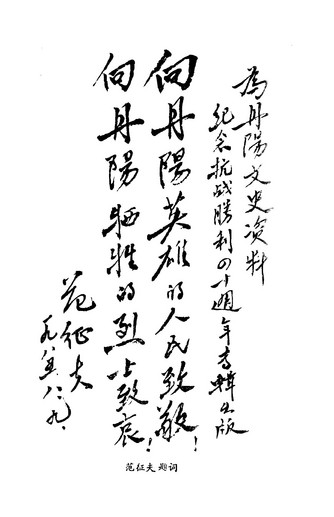 為丹陽文史资料
纪念抗战勝利四十週年专輯出版
向丹陽英雄的人民致敬！
向丹陽牺牲的烈士致哀！
范征夫
一九八五、八、九、
范征夫题词